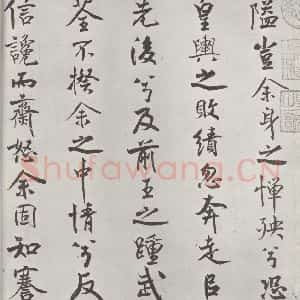 隘豈余身之憚殃兮恐
皇輿之敗績忽奔走以
先後兮及前王之踵武
荃不揆余之中情兮反
信讒而齌怒余固知謇
Shufawang.CN